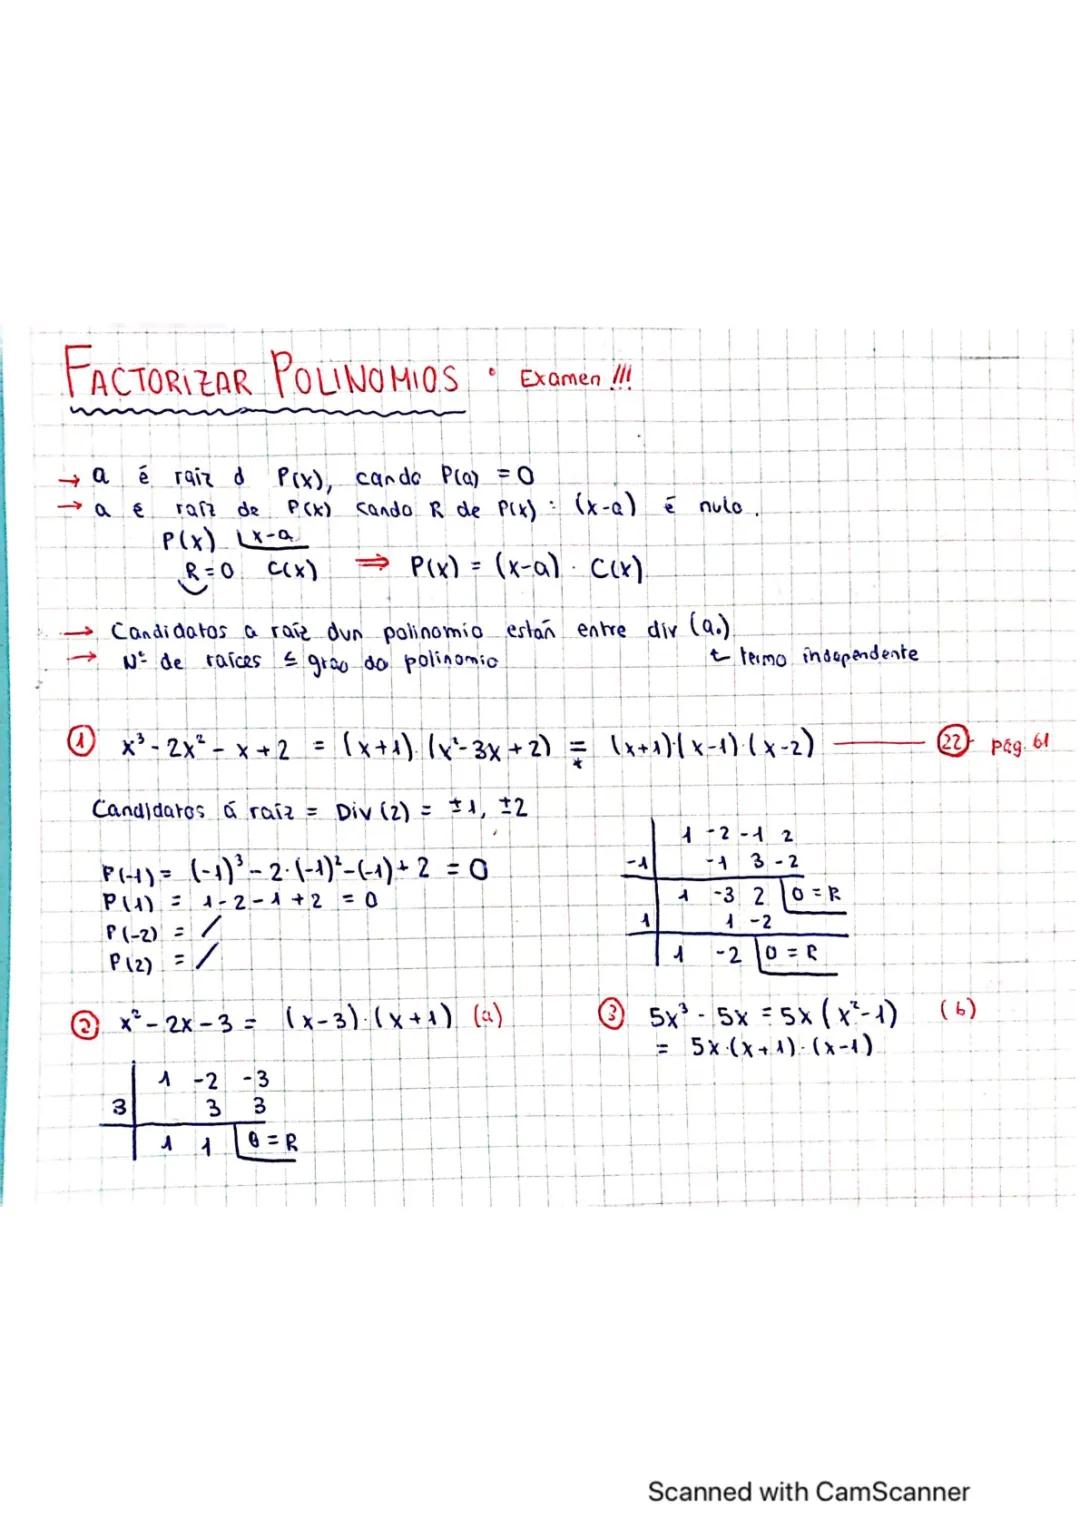 FACTORIZAR POLINOMIOS • Examen !!!
→ a é raíz d P(x), cando P(a) = 0
→ a é raíz de P(x) cando R de P(x) : (x-a) é nulo.
P(x) |x-a
R=0 C(x) ⇒ P(x) = (x-a) · C(x)
→ Candidatos a raíz dun polinomio están entre div (a₀)
→ Nº de raíces ≤ grao do polinomio
↳ termo independente
① x³ - 2x² - x + 2 = (x+1)·(x²-3x+2) = (x+1)·(x-1)·(x-2) —— ㉒ pág. 61
*
Candidatos á raíz = Div (2) = ±1, ±2
P(-1) = (-1)³ - 2·(-1)² - (-1) + 2 = 0
P(1) = 1 - 2 - 1 + 2 = 0
P(-2) = /
P(2) = /
1 -2 -1 2
-1 | -1 3 -2
1 -3 2 |0 = R
1 | 1 -2
1 -2 |0 = R
② x² - 2x - 3 = (x-3)·(x+1) (a)
1 -2 -3
3 | 3 3
1 1 |0 = R
③ 5x³ - 5x = 5x (x²-1) (b)
= 5x·(x+1)·(x-1)
Scanned with CamScanner